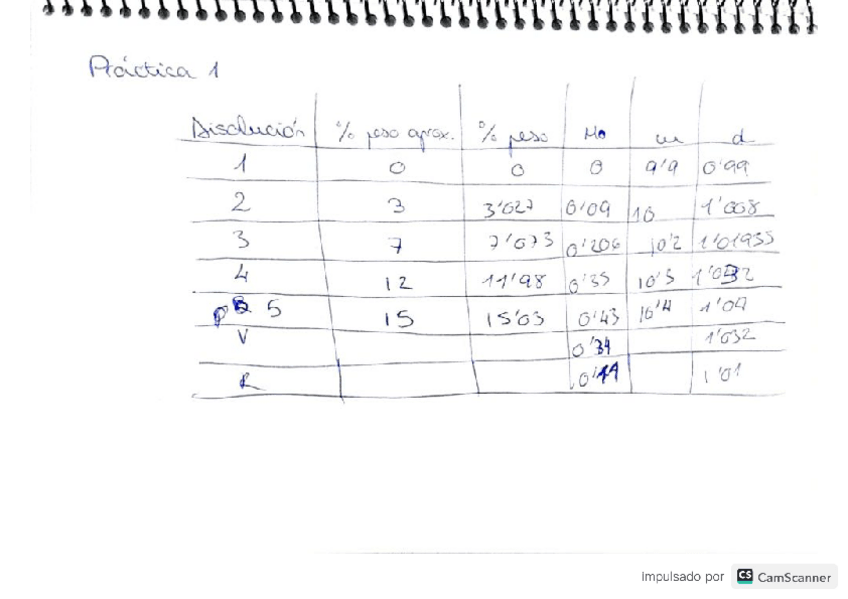 Práctica 1
Disolución % peso aprox. % peso Mo m d
1 0 0 0 9'9 0'99
2 3 3'027 0'09 10 1'008
3 7 7'073 0'206 10'2 1'01935
4 12 11'98 0'35 10'3 1'032
5 15 15'03 0'43 10'4 1'04
V 0'34 1'032
R 0'11 1'01
Impulsado por CS CamScanner